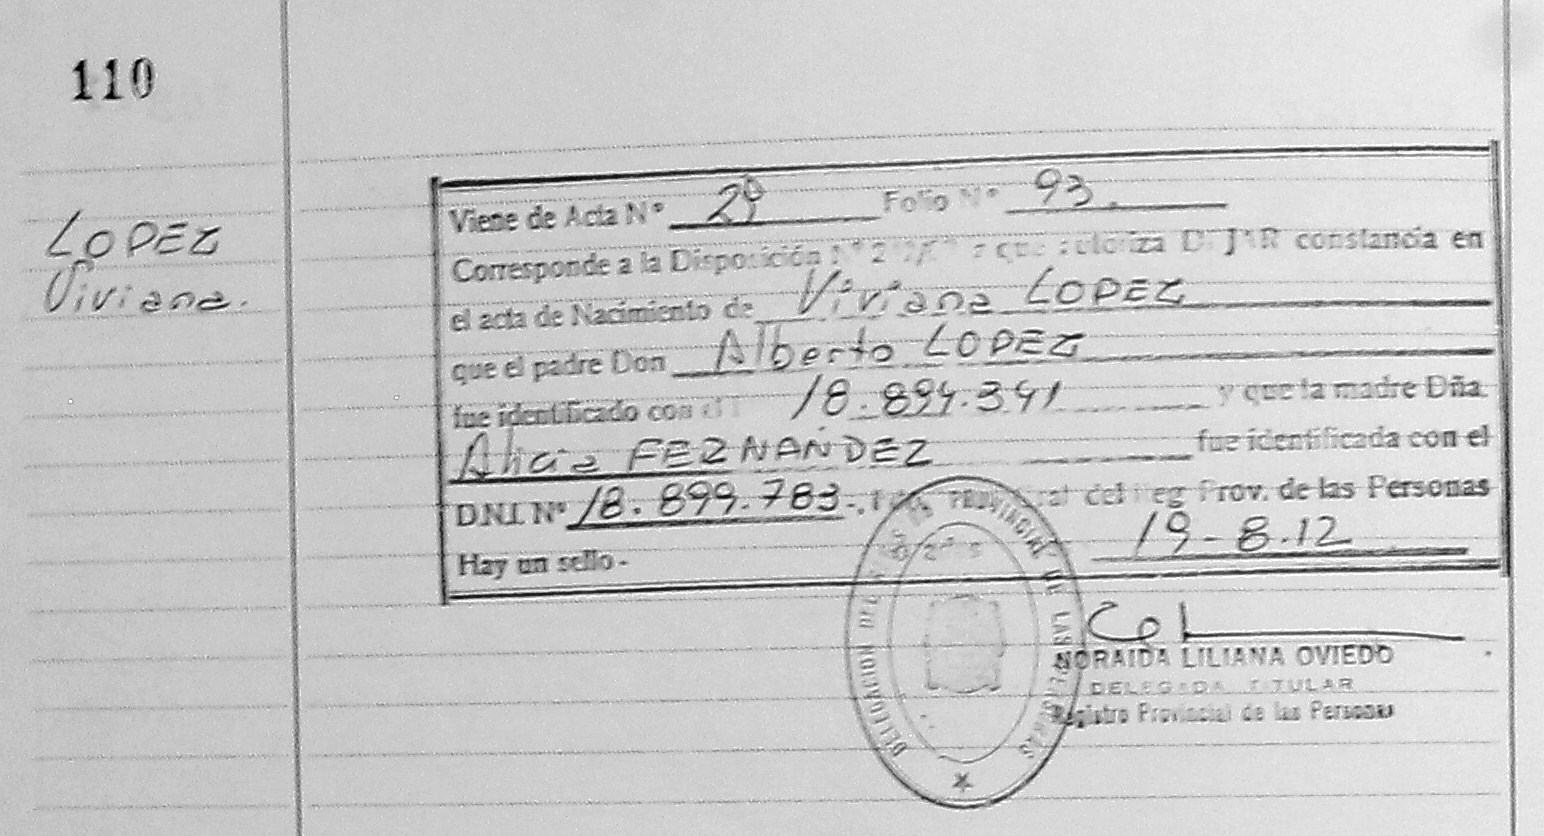 110
LOPEZ
Viviana.
Viene de Acta Nº 29 Folio Nº 93.
Corresponde a la Disposición que autoriza DEJAR constancia en
el acta de Nacimiento de Viviana LOPEZ
que el padre Don Alberto LOPEZ
fue identificado con el 18.894.341 y que la madre Dña.
Alicia FERNANDEZ fue identificada con el
D.N.I. Nº 18.899.783-, del Reg Prov. de las Personas
Hay un sello - 19-8.12
DELEGACION DEL PROVINCIAL DE LAS PERSONAS
NORAIDA LILIANA OVIEDO
DELEGADA TITULAR
Registro Provincial de las Personas